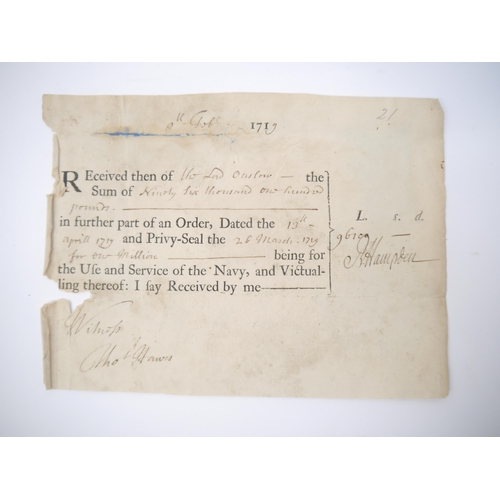 8th Octb 1719
21
REceived then of the Lord Onslow — the
Sum of Ninety Six thousand one hundred
pounds.
in further part of an Order, Dated the 13th
April 1719 and Privy-Seal the 26 March 1719
for one Million being for
the Use and Service of the Navy, and Victual-
ling thereof: I say Received by me
L. s. d.
96100 —
Hampden
Witness
Thos Hawes